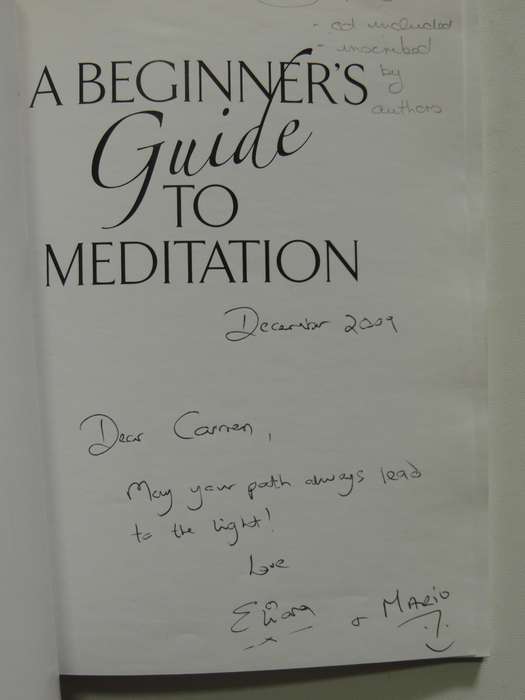 - cd included
- inscribed
by
authors
A BEGINNER'S
Guide
TO
MEDITATION
December 2009
Dear Carmen,
May your path always lead
to the light!
Love
Eliana & MARIO